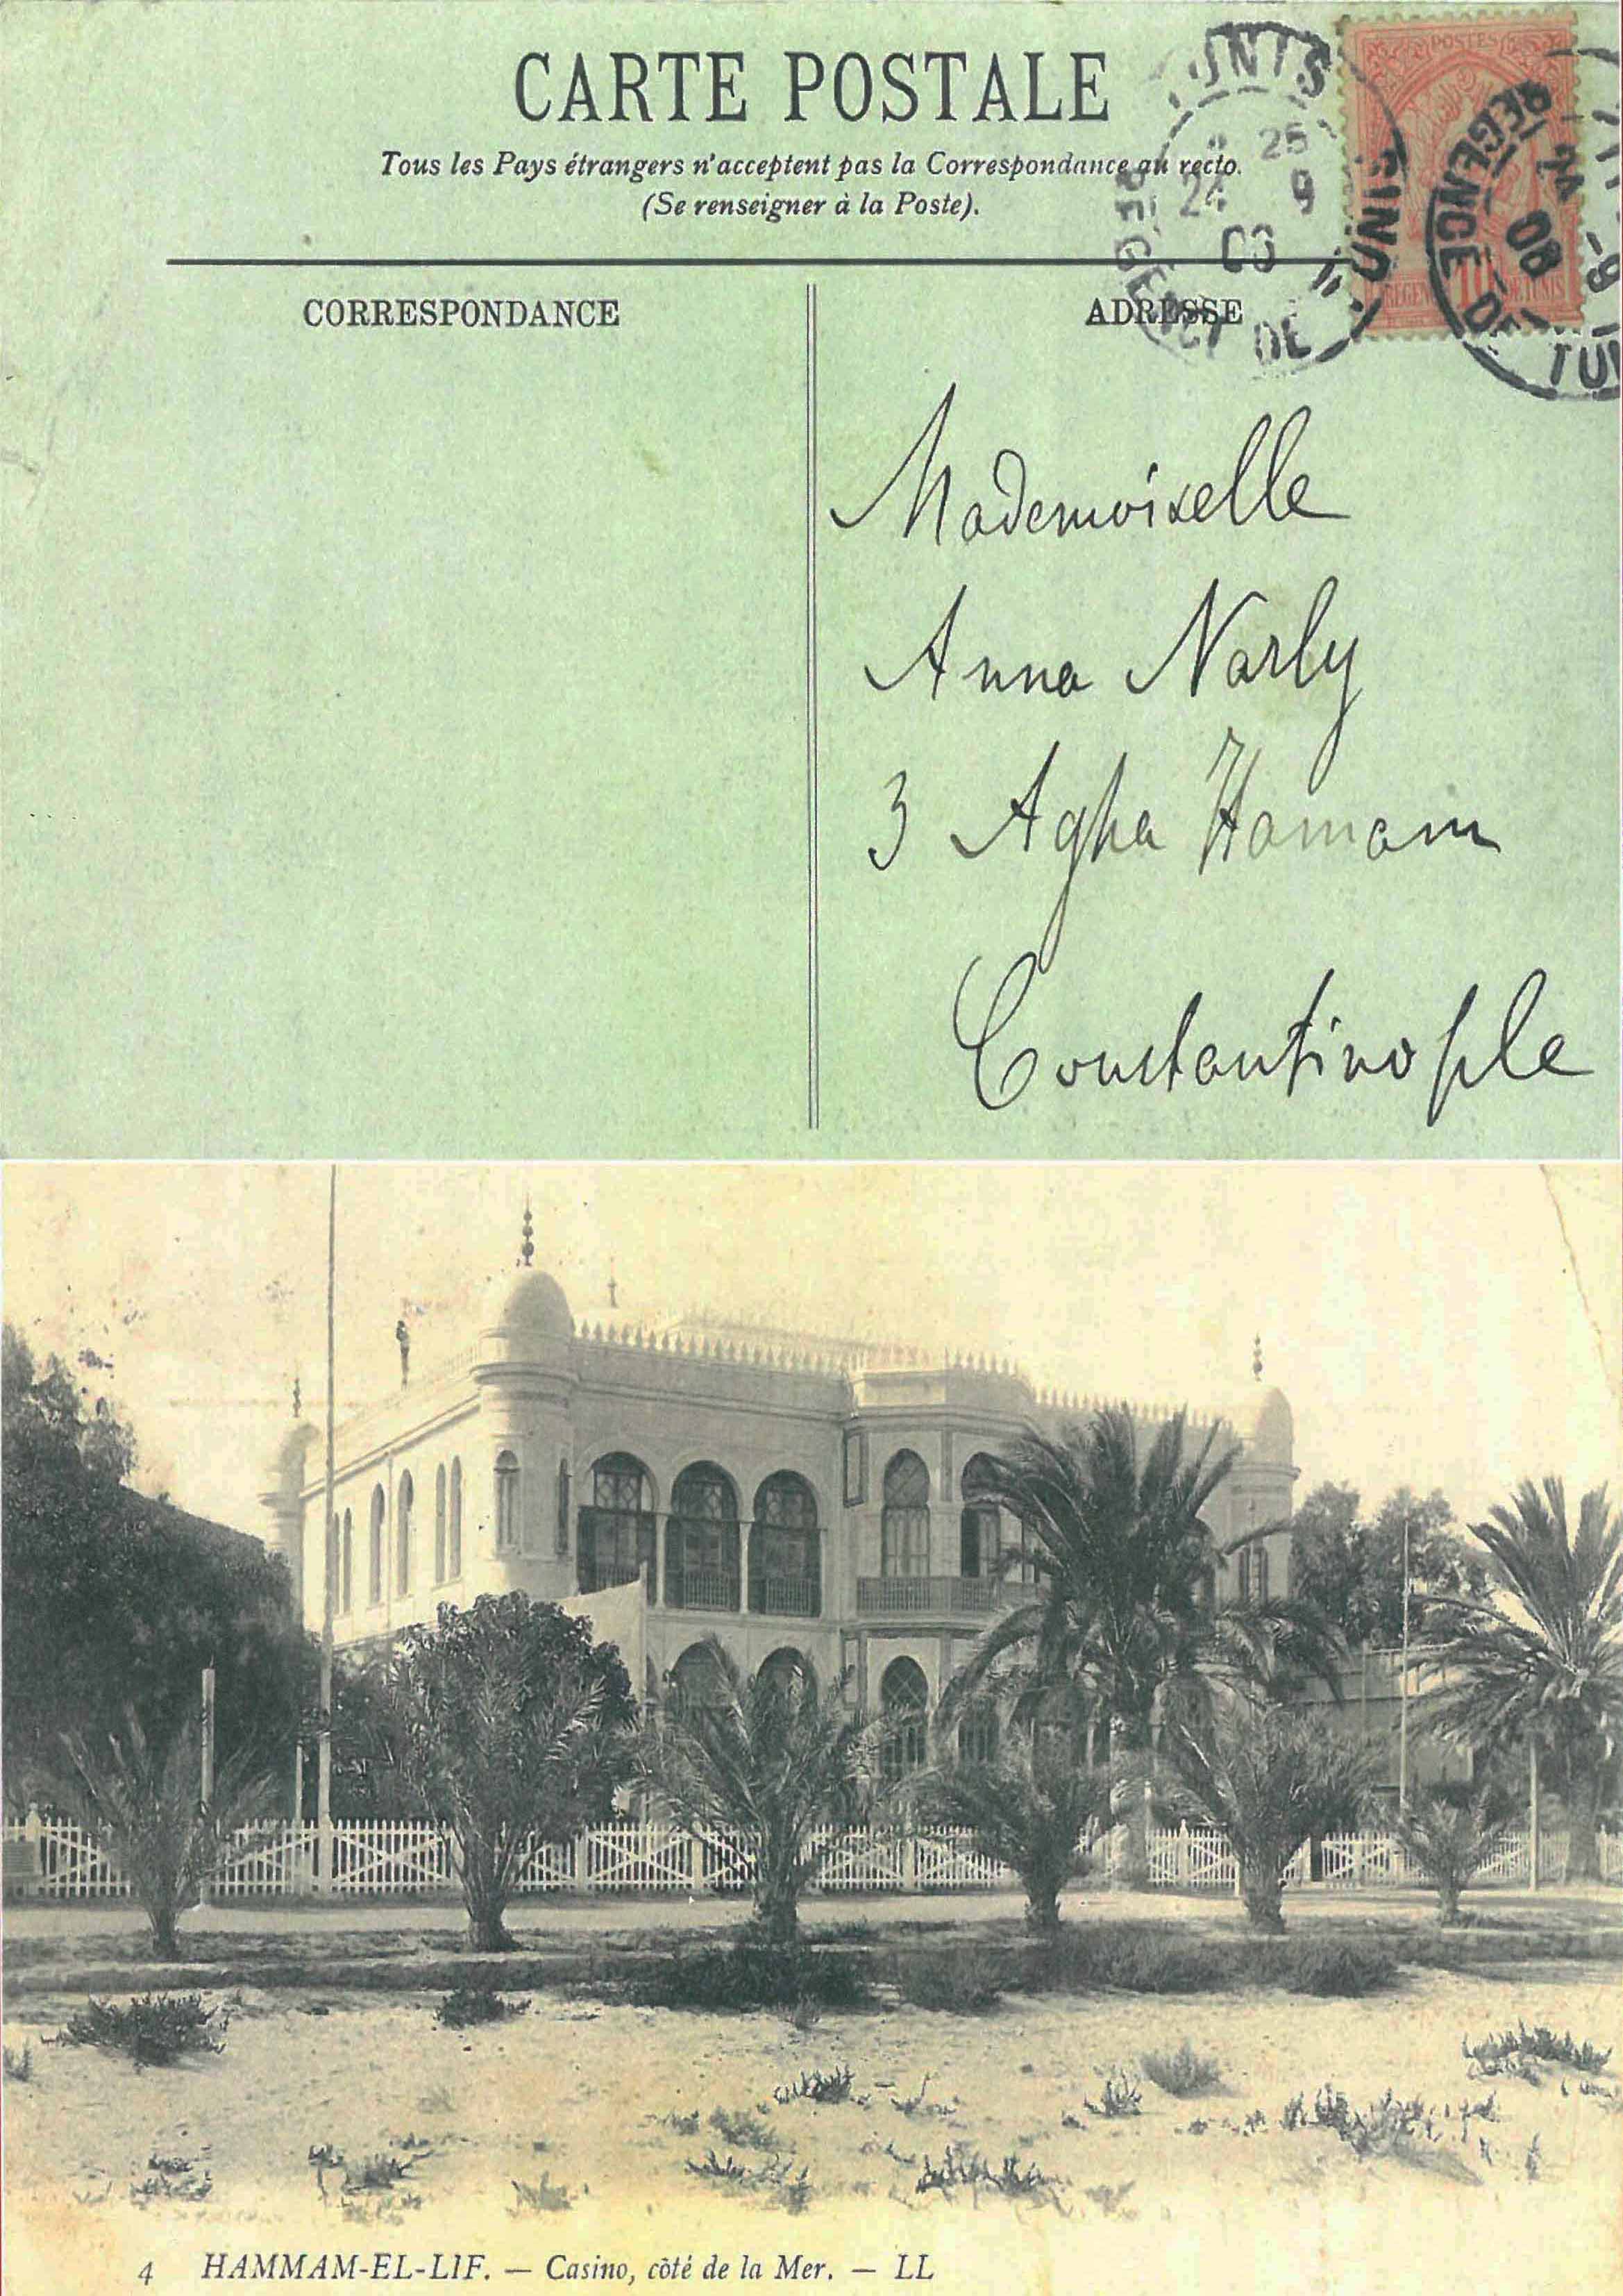 CARTE POSTALE
Tous les Pays étrangers n'acceptent pas la Correspondance au recto.
(Se renseigner à la Poste).
CORRESPONDANCE
ADRESSE
POSTES
10
TUNIS
25
24 9
08
REGENCE DE TUNIS
REGENCE DE TU
24
08
Mademoiselle
Anna Narly
3 Agha Hamam
Constantinople
4 HAMMAM-EL-LIF. — Casino, côté de la Mer. — LL